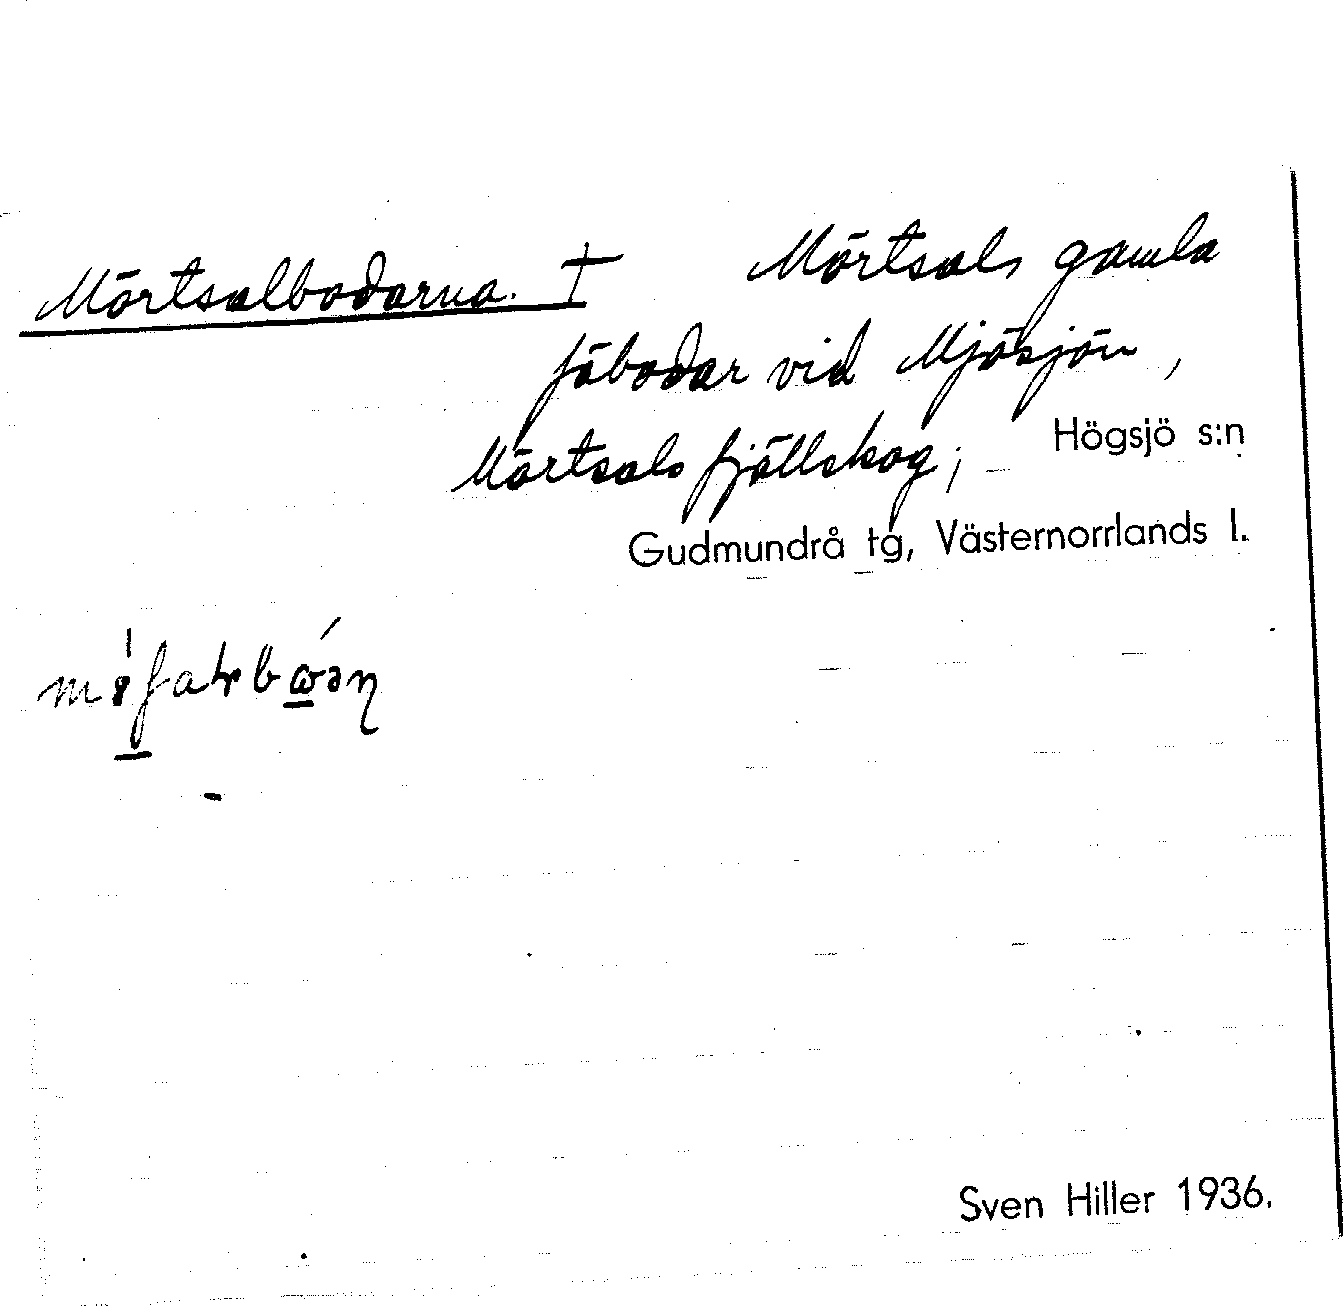 Mörtsalbodarna. † Mörtsals gamla
fäbodar vid Mjösjön,
Mörtsals fjällskog; Högsjö s:n
Gudmundrå tg, Västernorrlands l.
Sven Hiller 1936.